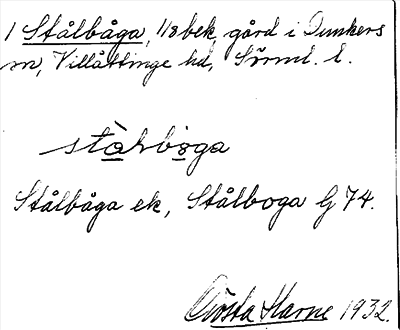 1 Stålbåga, 1/8 bek. gård i Dunkers
sn, Villåttinge hd, Sörml. l.
Stålbåga ek, Stålboga G 74.
Gösta Harne 1932.